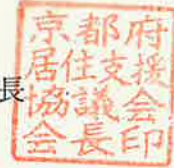 長
京都府
居住支援
協議会
会長印